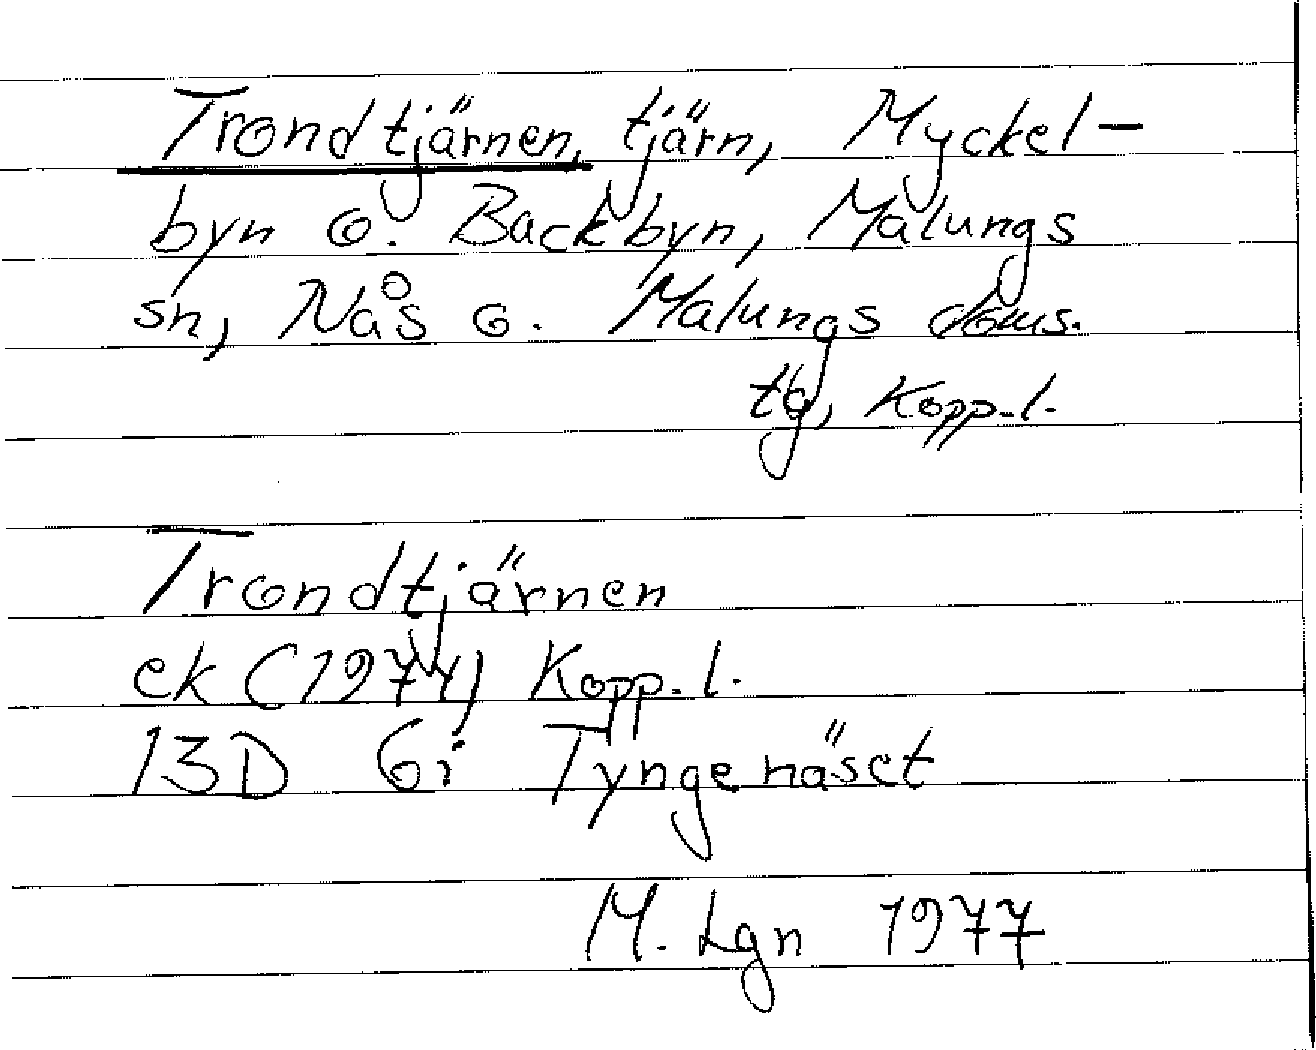 Trondtjärnen, tjärn, Myckel-
byn o. Backbyn, Malungs
sn, Nås o. Malungs doms.
tg, Kopp.l.
Trondtjärnen
ek (1974) Kopp.l.
13D 6i Tyngenäset
M. Lgn 1977